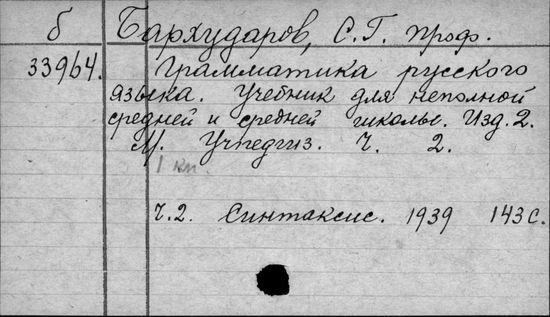 б Бархударов, С.Г. проф.
33964. Грамматика русского
языка. Учебник для неполной
средней и средней школы. Изд. 2.
М. Учпедгиз. Ч. 2.
1 кн.
Ч.2. Синтаксис. 1939 143 с.